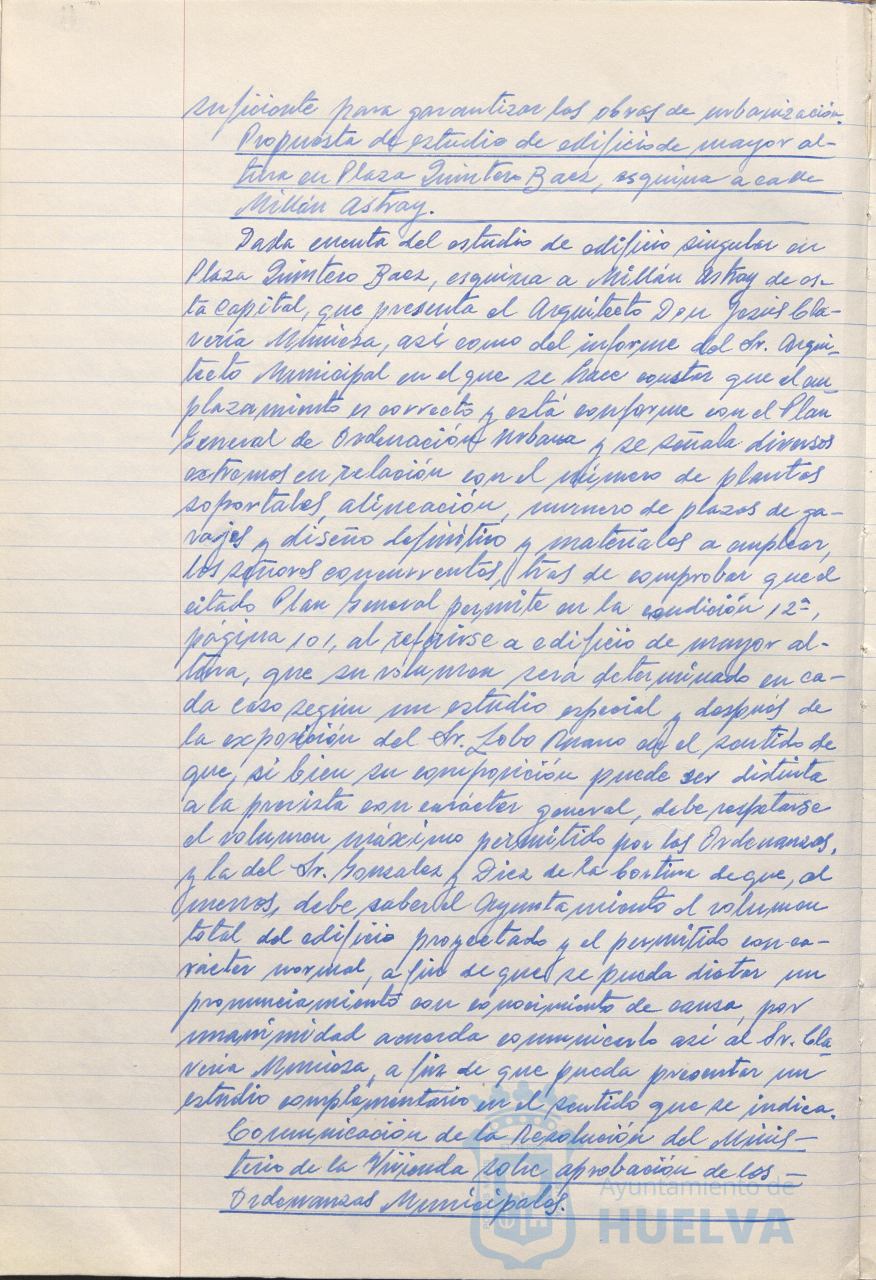 suficiente para garantizar las obras de urbanización.
Propuesta de estudio de edificio de mayor al-
tura en Plaza Quintero Baez, esquina a calle
Millán Astray.
Dada cuenta del estudio de edificio singular en
Plaza Quintero Baez, esquina a Millán Astray de es-
ta Capital, que presenta el Arquitecto Don Jesús Cla-
vería Muniesa, así como del informe del Sr. Arqui-
tecto Municipal en el que se hace constar que el em
plazamiento es correcto y está conforme con el Plan
General de Ordenación Urbana y se señala diversos
extremos en relación con el número de plantas
soportales alineación, número de plazas de ga-
rajes y diseño definitivo y materiales a emplear,
los señores concurrentes, tras de comprobar que el
citado Plan General permite en la condición 12ª,
página 101, al referirse a edificio de mayor al-
tura, que su volumen será determinado en ca-
da caso según un estudio especial y después de
la exposición del Sr. Lobo en el sentido de
que, si bien su composición puede ser distinta
a la prevista con carácter general, debe respetarse
el volumen máximo permitido por las Ordenanzas,
y la del Sr. Gonzalez y Diez de la Cortina de que, al
menos, debe saber el Ayuntamiento el volumen
total del edificio proyectado y el permitido con ca-
rácter normal, a fin de que se pueda dictar un
pronunciamiento con conocimiento de causa, por
unanimidad acuerda comunicarlo así al Sr. Cla-
vería Muniesa, a fin de que pueda presentar un
estudio complementario en el sentido que se indica.
Comunicación de la Resolución del Minis-
terio de la Vivienda sobre aprobación de los -
Ordenanzas Municipales.
Ayuntamiento de
HUELVA